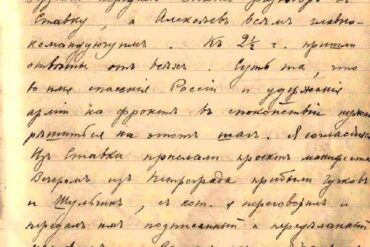 разговоръ въ
Ставку, а Алексѣевъ всѣмъ главно-
командующимъ. Къ 2½ ч. пришли
отвѣты отъ всѣхъ. Суть та, что
во имя спасенія Россіи и удержанія
арміи на фронтѣ въ спокойствіи нужно
рѣшиться на этотъ шагъ. Я согласился.
Изъ Ставки прислали проектъ манифеста.
Вечеромъ изъ Петрограда прибыли Гучковъ
и Шульгинъ, съ кот. я переговорилъ и
передалъ имъ подписанный и передѣланный